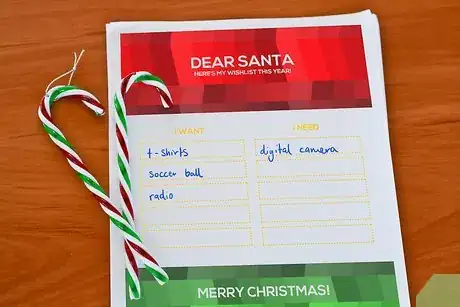 DEAR SANTA
HERE'S MY WISHLIST THIS YEAR!
I WANT
I NEED
t-shirts
digital camera
soccer ball
radio
MERRY CHRISTMAS!